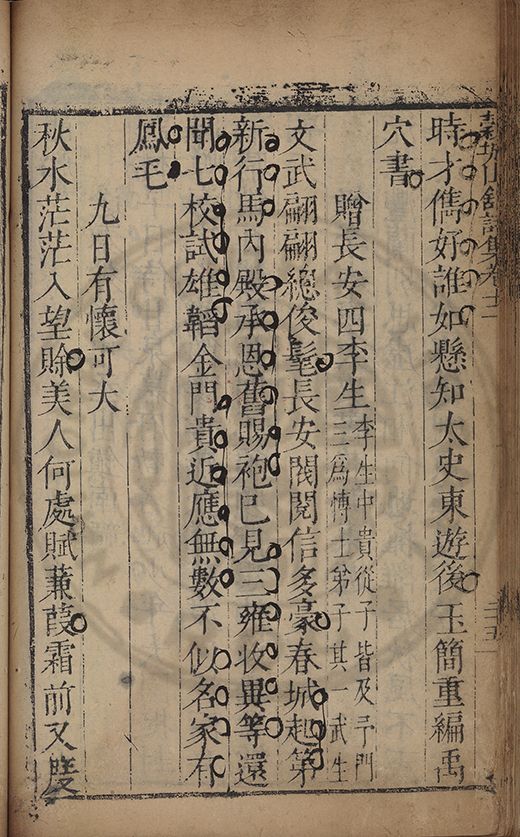 穀城山館詩集卷十二
時才儁好誰如懸知太史東遊後玉簡重編禹
穴書
贈長安四李生
李生中貴從子皆及予門
三爲博士弟子其一武生
文武翩翩總俊髦長安閥閱信多豪春城起第
新行馬內殿承恩舊賜袍巳見三雍收異等還
聞七校試雄韜金門貴近應無數不似名家有
鳳毛
九日有懷可大
秋水茫茫入望賒美人何處賦蒹葭霜前又